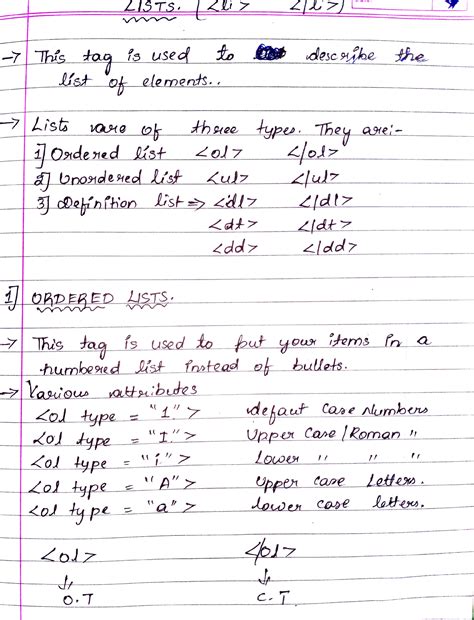 LISTS. (<li> </li>)
→ This tag is used to describe the
list of elements..
→ Lists are of three types. They are:-
1] Ordered list <ol> </ol>
2] Unordered list <ul> </ul>
3] Definition list ⇒ <dl> </dl>
<dt> </dt>
<dd> </dd>
1] ORDERED LISTS.
→ This tag is used to put your items in a
numbered list instead of bullets.
→ Various attributes
<ol type = "1"> defaut case Numbers
<ol type = "I"> Upper Case/Roman "
<ol type = "i"> Lower " " "
<ol type = "A"> Upper case Letters.
<ol type = "a"> lower case letters.
<ol> </ol>
↓ ↓
O.T C.T